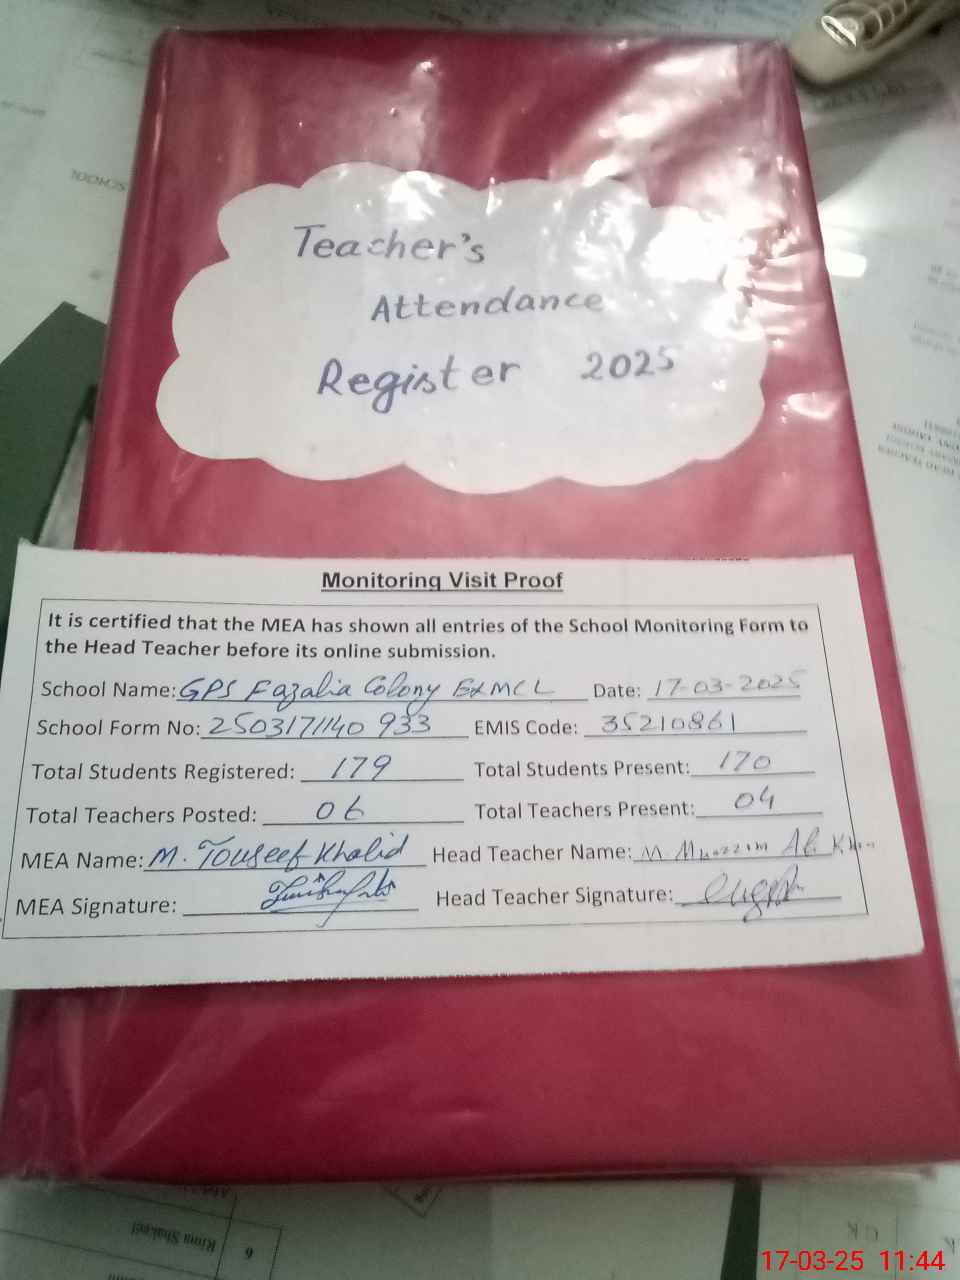 Teacher's
Attendance
Register 2025
Monitoring Visit Proof
It is certified that the MEA has shown all entries of the School Monitoring Form to
the Head Teacher before its online submission.
School Name: GPS Fazalia Colony Ex MCL Date: 17-03-2025
School Form No: 2503171140 933 EMIS Code: 35210861
Total Students Registered: 179 Total Students Present: 170
Total Teachers Posted: 06 Total Teachers Present: 04
MEA Name: M. Touseef Khalid Head Teacher Name: M. Muazzim Ali Khan
MEA Signature: Head Teacher Signature:
SCHOOL
Rima Shakeel 6
17-03-25 11:44